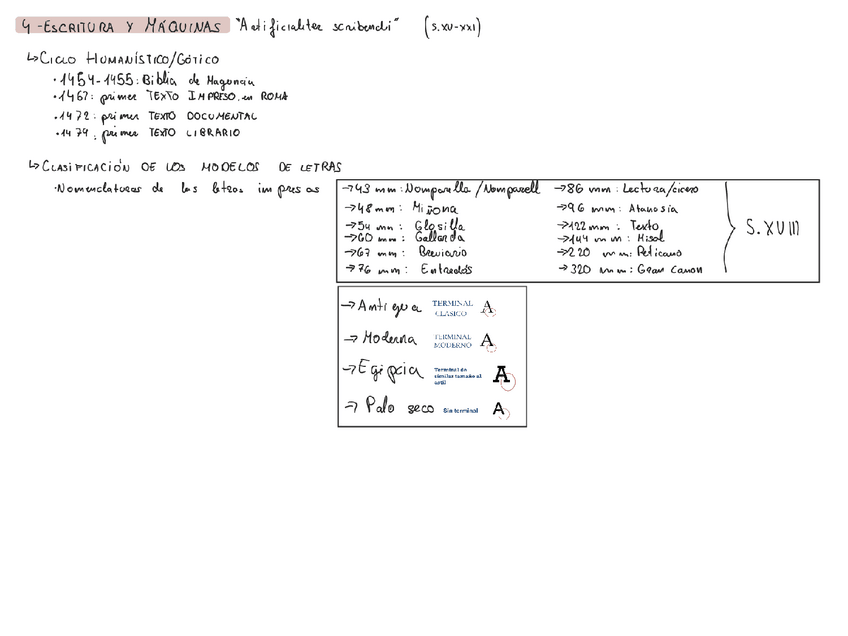 4-ESCRITURA Y MÁQUINAS "Artificialiter scribendi" (S.XV-XXI)
↳CICLO HUMANÍSTICO/GÓTICO
·1454-1455: Biblia de Maguncia
·1467: primer TEXTO IMPRESO en ROMA
·1472: primer TEXTO DOCUMENTAL
·1479: primer TEXTO LIBRARIO
↳CLASIFICACIÓN DE LOS MODELOS DE LETRAS
·Nomenclaturas de las letras impresas
→43 mm: Nomparella/Nomparell →86 mm: Lectura/cícero
→48mm: Miñona →96 mm: Atanasia
→54 mm: Glosilla →122mm: Texto
→60 mm: Gallarda →144 mm: Misal
→67 mm: Breviario →220 mm: Peticano
→76 mm: Entredós →320 mm: Gran Canon
S.XVIII
→Antigua TERMINAL CLASICO A
→Moderna TERMINAL MODERNO A
→Egipcia Terminal de similar tamaño al astil A
→Palo seco Sin terminal A